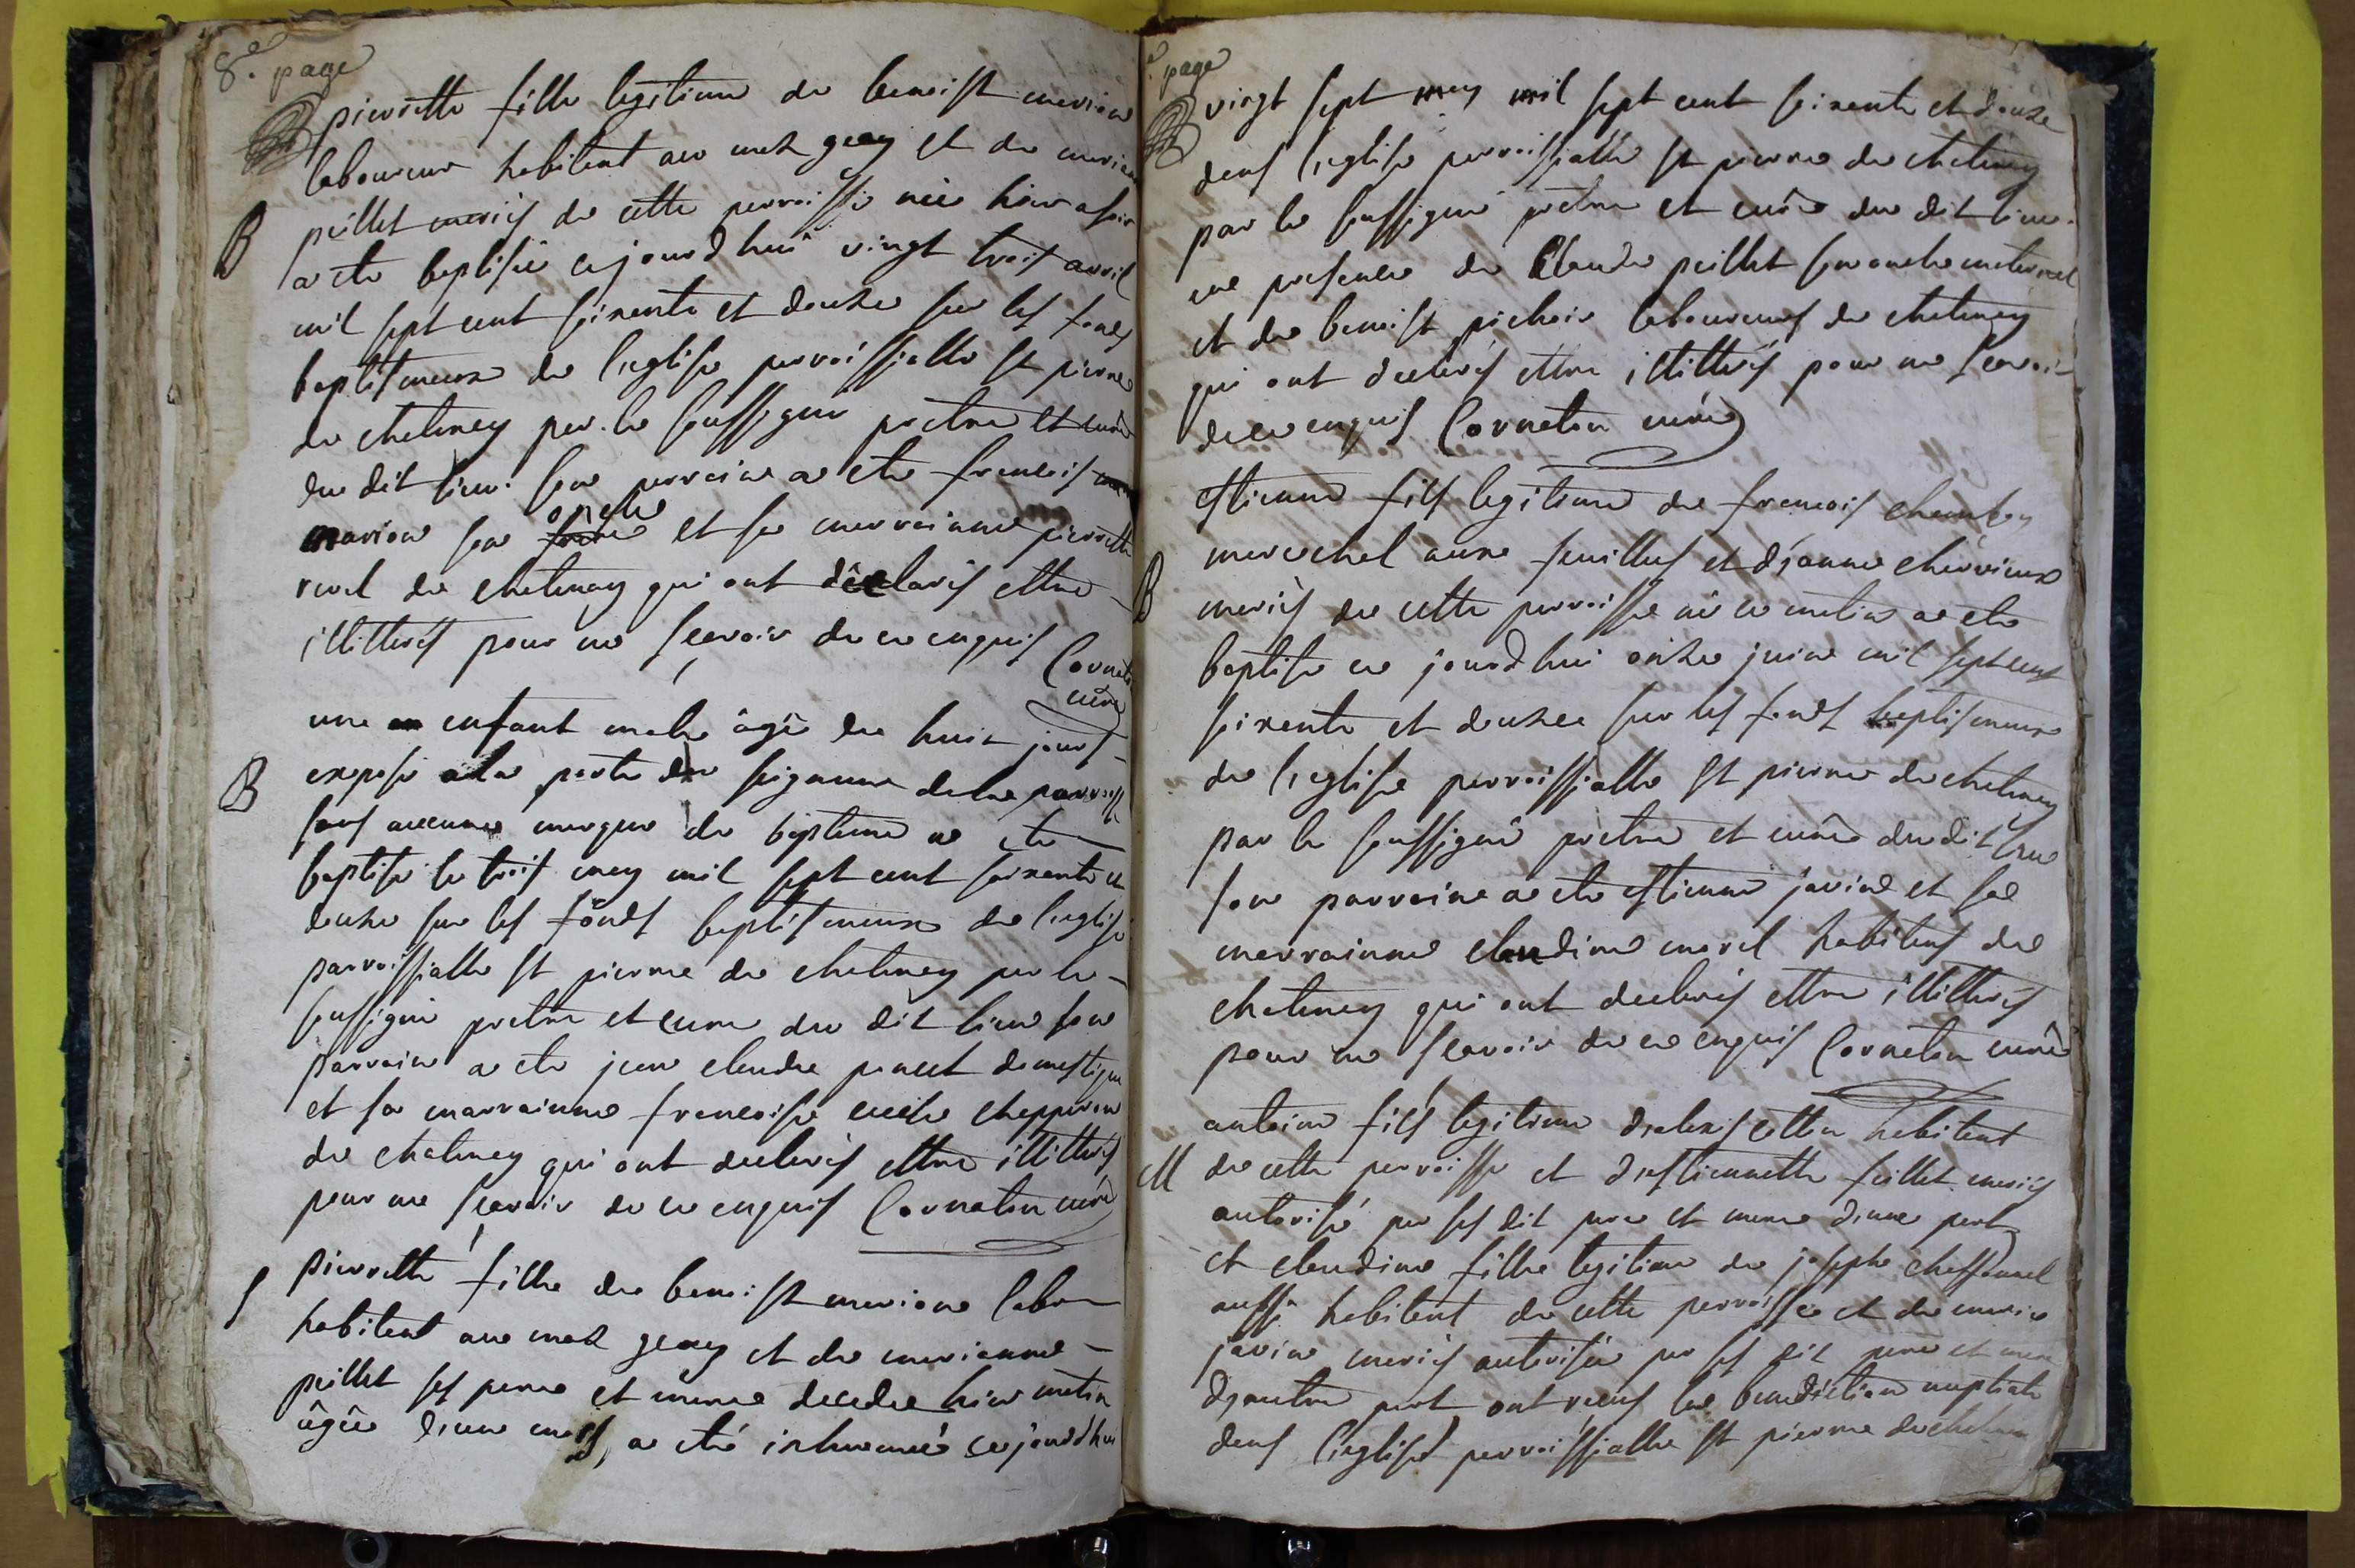 8.e page
pierrette fille legitime de benoist marion
laboureur habitant au mas geay et de marianne
B peillet mariés de cette parroisse née hier a soir
a ete baptisée ce jourd huî vingt trois avril
mil sept cent soixante et douze sur les fonds
baptismeaux de l'eglise parroissialle st pierre
de chatenay par le soussigné pretre et curé
du dit lieu. son parrain a ete francois
marion son oncle et sa marrainne pierrette
de chatenay qui ont déclarés ettre
illitterés pour ne scavoir de ce enquis Cornaton
curé
une enfant male âgé de huit jours
B exposé a la porte du seigneur de la parroisse
sans aucune marque de bapteme a ete
baptisé le trois may mil sept cent soixante et
douze sur les fonds baptismeaux de l'eglise
parroissialle st pierre de chatenay par le
soussigné pretre et curé du dit lieu son
parrain a ete jean claudre domestique
et sa marrainne francoise chapperon
de chatenay qui ont declarés ettre illitterés
pour ne scavoir de ce enquis Cornaton curé
S pierrette fille de benoist marion labour
habitant au mas geay et de marianne
peillet ses pere et mere decedee hier matin
âgée d'un mois, a été inhumée ce jourd hui
page
vingt sept may mil sept cent soixante et douze
dans l'eglise parroissialle st pierre de chatenay
par le soussigné pretre et curé du dit lieu.
en presence de Claude peillet son oncle maternel
et de benoist pichoir laboureurs de chatenay
qui ont declarés ettre illitterés pour ne scavoir
de ce enquis Cornaton curé
estienne fils legitime de francois
marechal aux feuilles et d'janne chervieux
B mariés de cette parroisse né ce matin a ete
baptisé ce jourd hui onze juin mil sept cent
soixante et douze sur les fonds baptismeaux
de l'eglise parroissialle st pierre de chatenay
par le soussigné pretre et curé du dit lieu
son parrain a ete estienne javin et sa
marrainne claudine morel habitans de
chatenay qui ont declarés ettre illitterés
pour ne scavoir de ce enquis Cornaton curé
antoine fils legitime d'alexis cottin habitant
M de cette parroisse et d'estiennette feillet mariés
autorisé par ses dit pere et mere d'une part
et claudine fille legitime de josephe chaffanel
aussi habitant de cette parroisse et de marie
javin mariés autorisée par ses dit pere et mere
d'autre part ont recus la benediction nuptiale
dans l'eglise parroissialle st pierre de chatenay